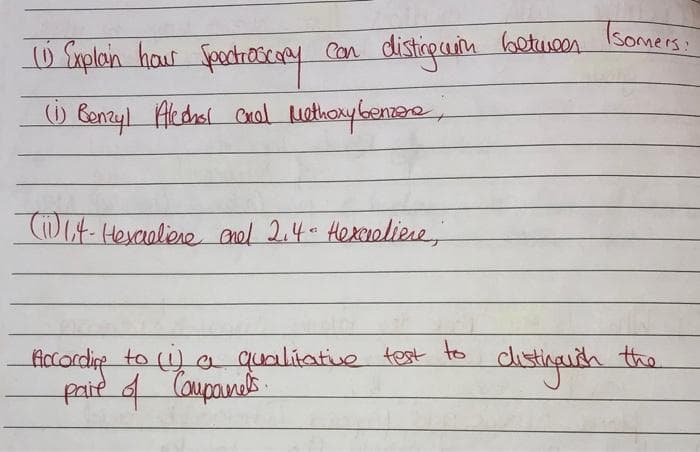 (i) Explain how Spectroscopy can distinguish between Isomers:
(i) Benzyl Alcohol and Methoxybenzene,
(ii) 1,4-Hexadiene and 2,4-Hexadiene,
According to (i) a qualitative test to distinguish the
pair of Compounds.